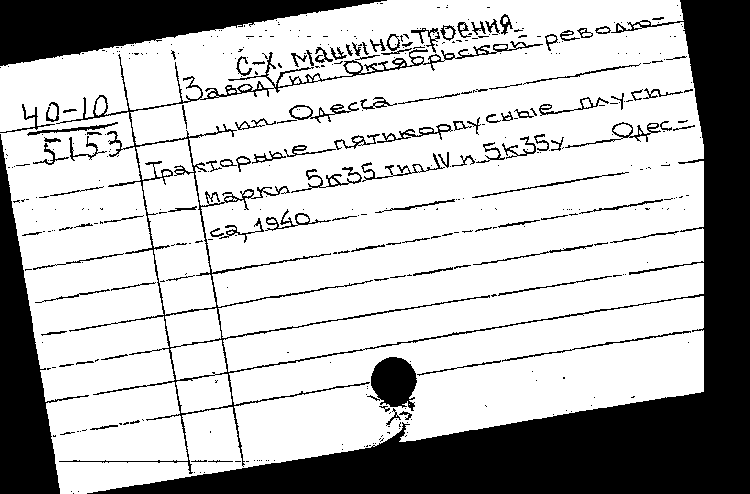 с.-х. машиностроения
Завод им. Октябрьской револю-
40-10
ции. Одесса
5153
Тракторные пятикорпусные плуги
марки 5к35 тип. IV и 5к35у. Одес-
са, 1940.